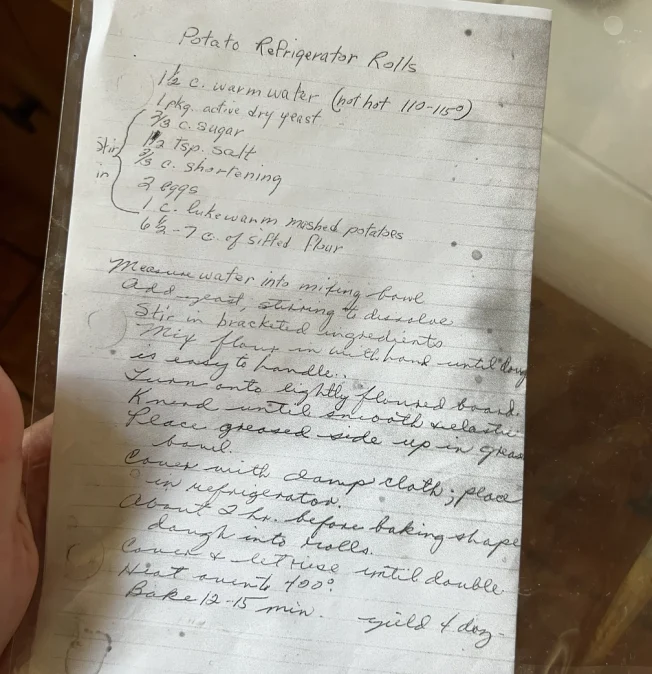 Potato Refrigerator Rolls
1½ c. warm water (not hot 110-115°)
1 pkg. active dry yeast
⅔ c. sugar
1½ tsp. salt
⅔ c. shortening
2 eggs
1 c. lukewarm mashed potatoes
Stir in
6½-7 c. of sifted flour
Measure water into mixing bowl
Add yeast, stirring to dissolve
Stir in bracketed ingredients
Mix flour in with hand until doug
is easy to handle..
Turn onto lightly floured board.
Knead until smooth & elastic
Place greased side up in greas
bowl.
Cover with damp cloth; place
in refrigerator.
About 2 hr. before baking shape
dough into rolls.
Cover & let rise until double
Heat oven to 400°.
Bake 12-15 min. yield 4 doz.